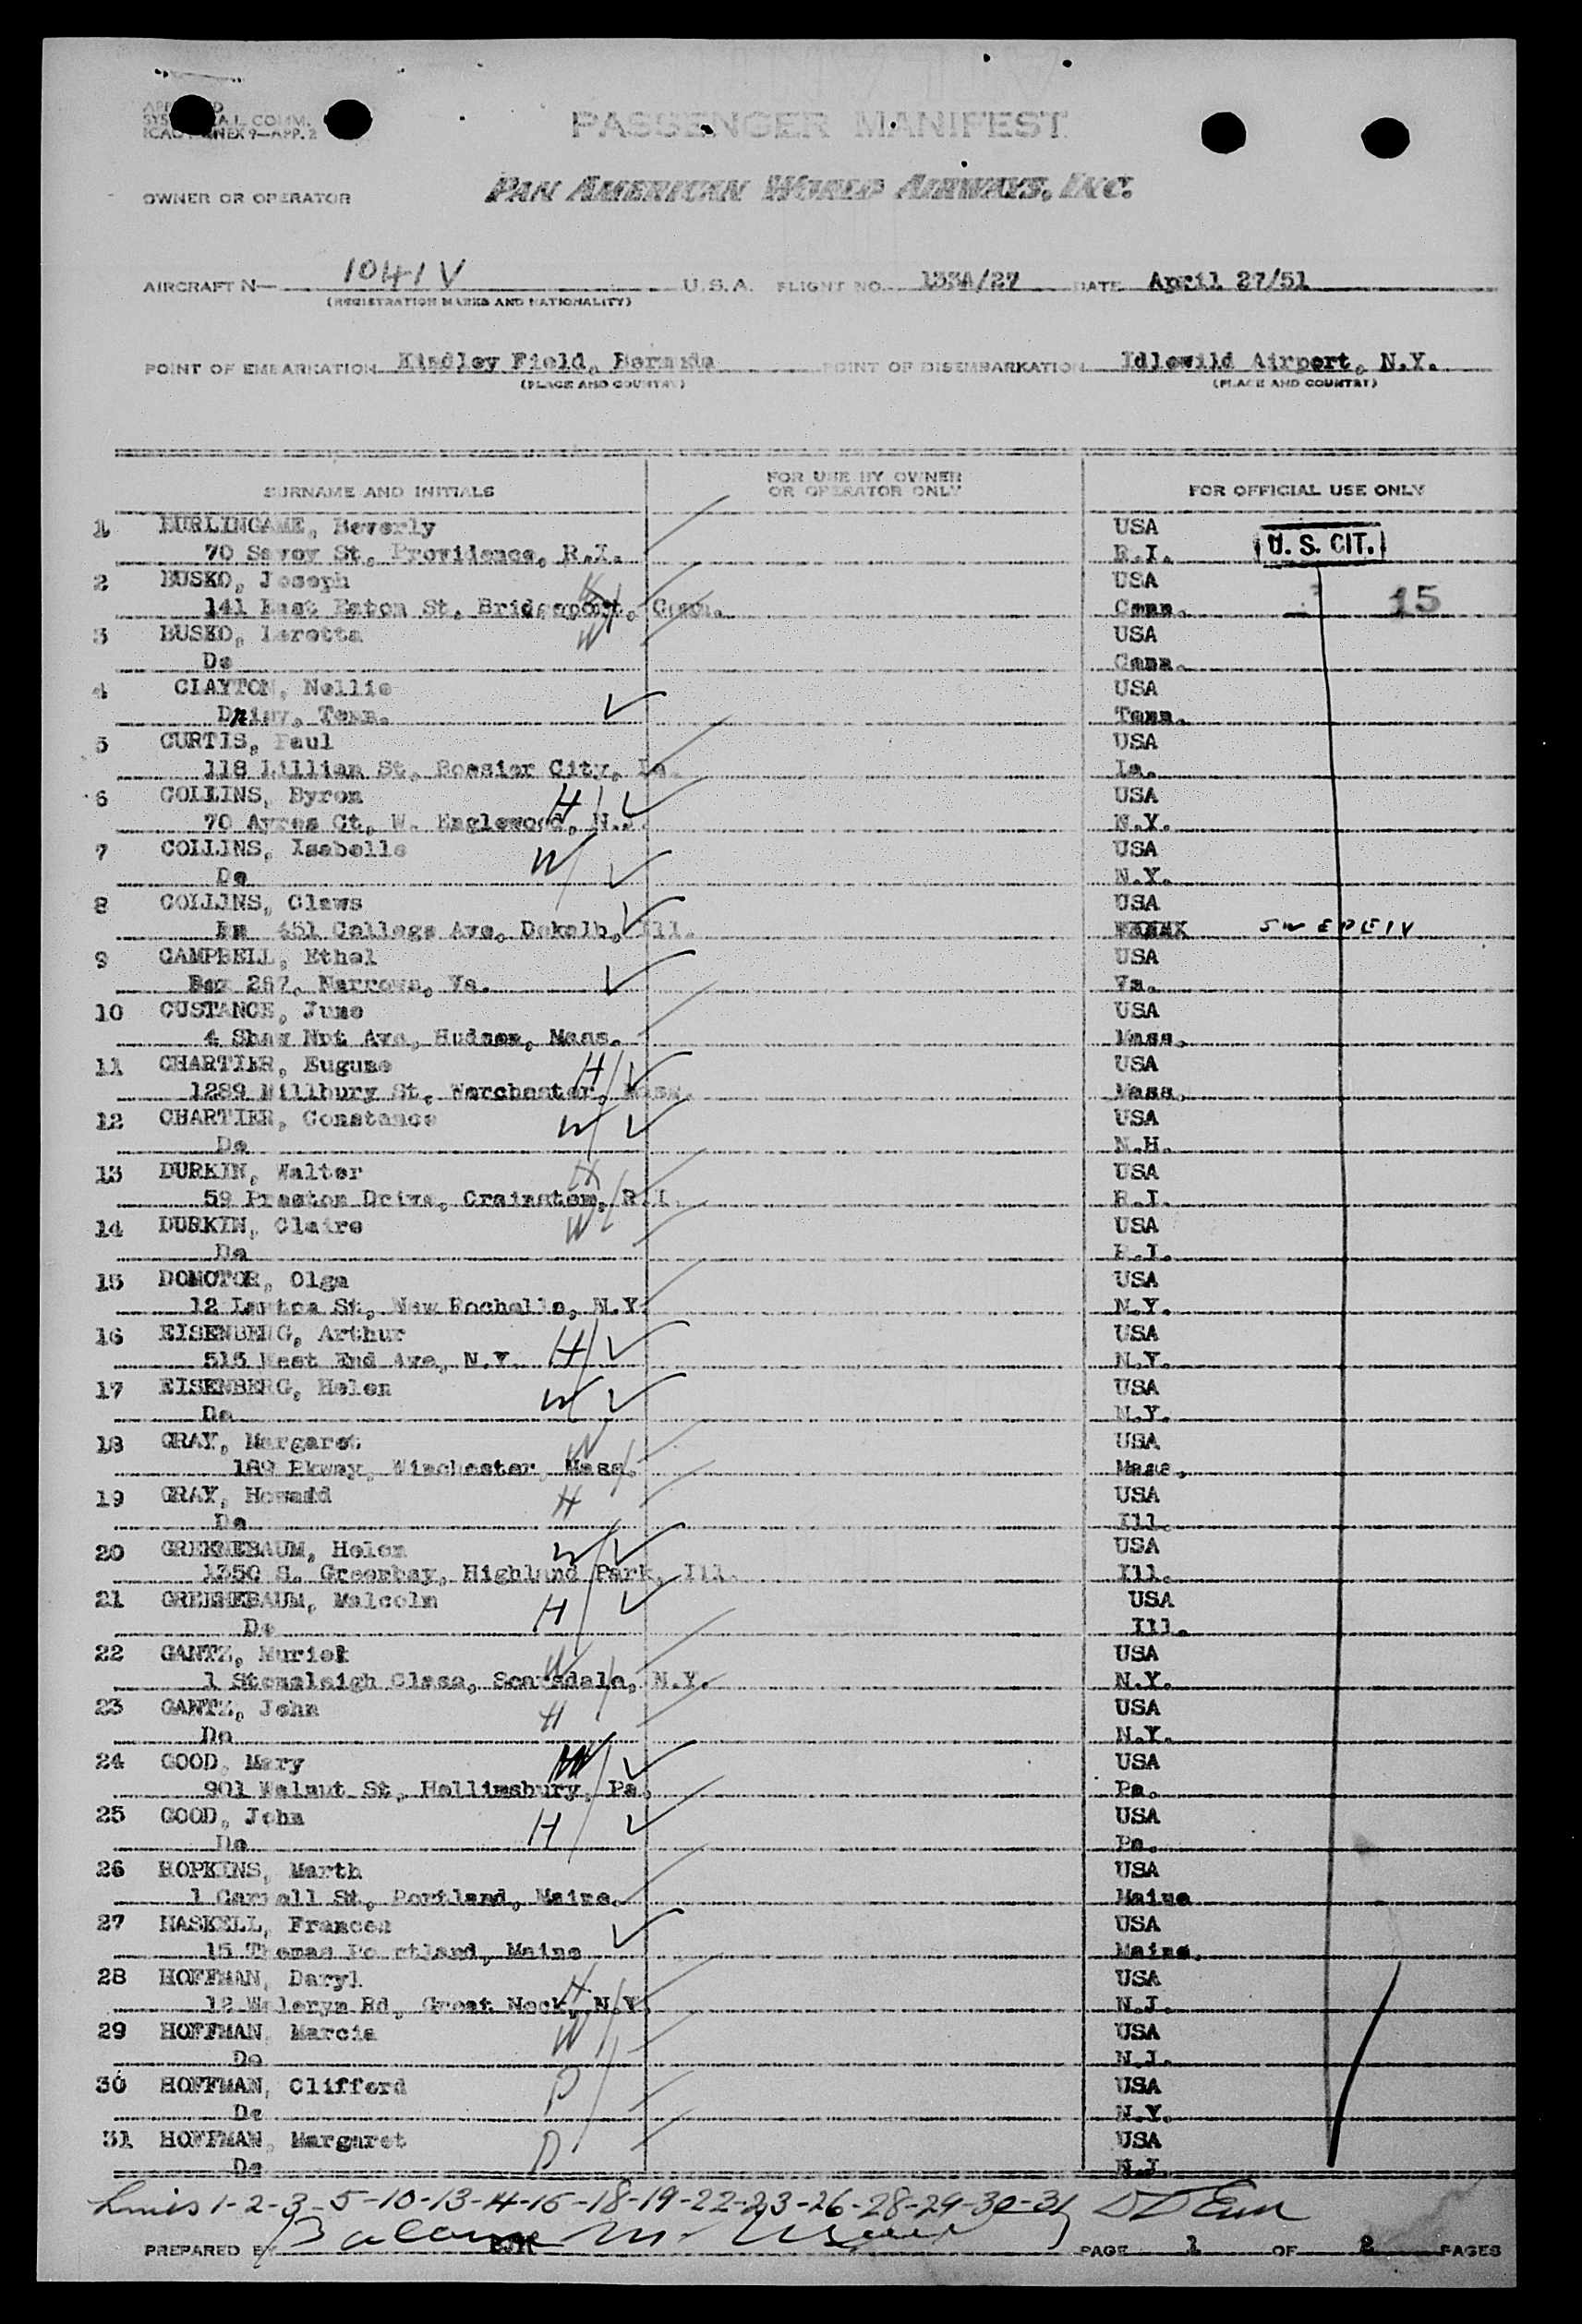 PASSENGER MANIFEST
ICAO ANNEX 9—APP. 2
OWNER OR OPERATOR PAN AMERICAN WORLD AIRWAYS, INC.
AIRCRAFT N— 1041V U.S.A. FLIGHT NO. 133A/27 DATE April 27/51
(REGISTRATION MARKS AND NATIONALITY)
POINT OF EMBARKATION Kindley Field, Bermuda POINT OF DISEMBARKATION Idlewild Airport, N.Y.
(PLACE AND COUNTRY) (PLACE AND COUNTRY)
SURNAME AND INITIALS FOR USE BY OWNER OR OPERATOR ONLY FOR OFFICIAL USE ONLY
1 BURLINGAME, Beverly USA
70 Savoy St, Providence, R.I. R.I. U. S. CIT.
2 BUSKO, Joseph USA
141 East Eaton St, Bridgeport, Conn. Conn. 15
3 BUSKO, Loretta W USA
Do Conn.
4 CLAYTON, Nellie USA
Tenn. Tenn.
5 CURTIS, Paul USA
118 Lillian St, Bossier City, La. La.
6 COLLINS, Byron H USA
70 Ayres Ct, W. Englewood, N.J. N.Y.
7 COLLINS, Isabelle W USA
Do N.Y.
8 COLLINS, Claws USA
451 College Ave, Dekalb, Ill. SWEDEN
9 CAMPBELL, Ethel USA
Box 267, Narrows, Va. Va.
10 CUSTANCE, June USA
4 Shaw Nut Ave, Hudson, Mass. Mass.
11 CHARTIER, Eugune H USA
1289 Millbury St, Worchester, Mass. Mass.
12 CHARTIER, Constance W USA
Do N.H.
13 DURKIN, Walter H USA
59 Preston Drive, Crainston, R.I. R.I.
14 DURKIN, Claire W USA
Do R.I.
15 DOMOTOR, Olga USA
12 St, New Rochelle, N.Y. N.Y.
16 EISENBERG, Arthur H USA
515 West End Ave, N.Y. N.Y.
17 EISENBERG, Helen W USA
Do N.Y.
18 GRAY, Margaret W USA
189 Pkway, Winchester, Mass. Mass.
19 GRAY, Howadd H USA
Do Ill.
20 GREENEBAUM, Helen W USA
1350 S. Greenbay, Highland Park, Ill. Ill.
21 GREENEBAUM, Malcolm H USA
Do Ill.
22 GANTZ, Muriel W USA
1 Stonleigh Close, Scarsdale, N.Y. N.Y.
23 GANTZ, John H USA
Do N.Y.
24 GOOD, Mary W USA
901 Walnut St, Hollinsbury, Pa. Pa.
25 GOOD, John H USA
Do Pa.
26 HOPKINS, Marth USA
1 St, Portland, Maine. Maine
27 HASKELL, Frances USA
15 Thomas Portland, Maine Maine.
28 HOFFMAN, Daryl H USA
12 Rd, Great Neck, N.Y. N.J.
29 HOFFMAN, Marcia W USA
Do N.J.
30 HOFFMAN, Clifford D USA
Do N.Y.
31 HOFFMAN, Margaret D USA
Do N.J.
Lines 1-2-3-5-10-13-14-15-18-19-22-23-26-28-29-30-31
PREPARED BY PAGE 1 OF 2 PAGES